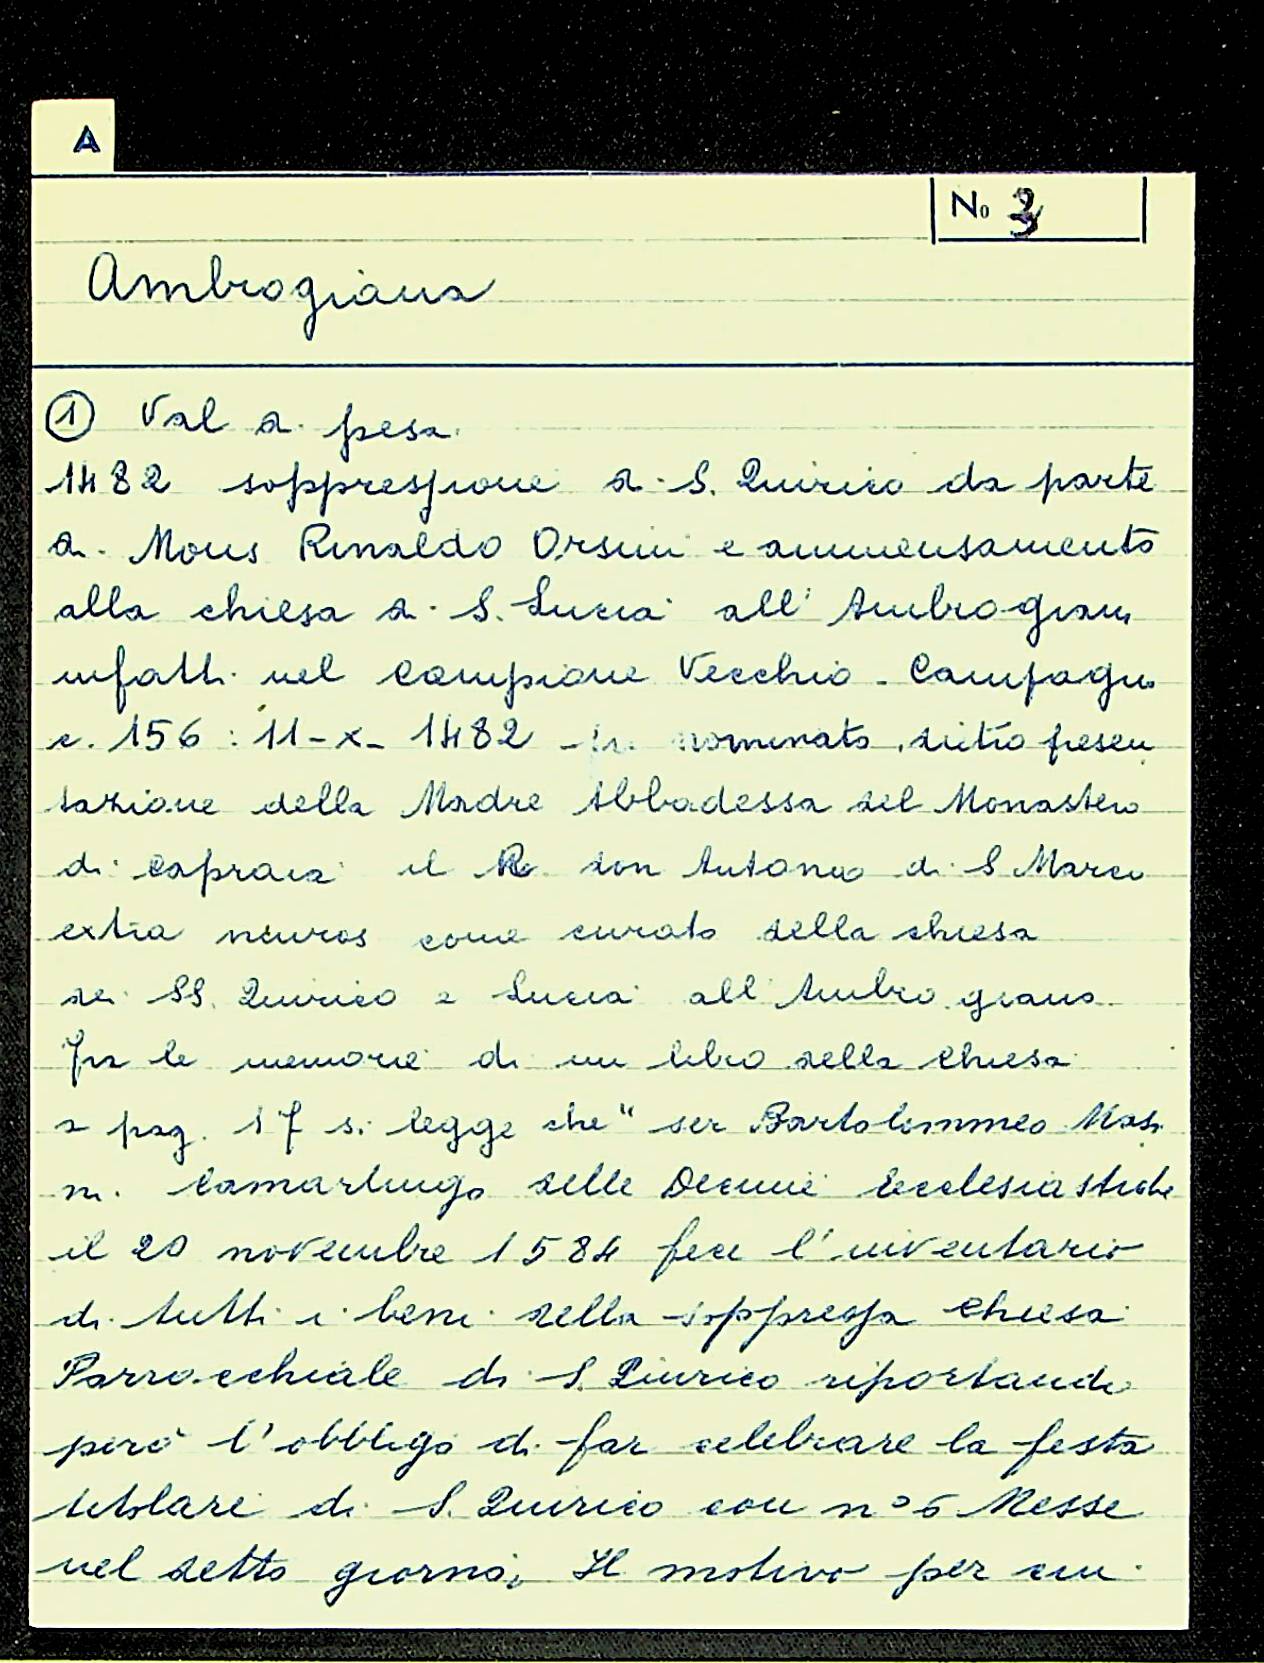 A
No 3
Ambrogiana
① Val di pesa.
1482 soppressione di S. Quirico da parte
di Mons Rinaldo Orsini e ammensamento
alla chiesa di S. Lucia all' Ambrogiana
infatti nel campione Vecchio - Campagna
c. 156 : 11-X- 1482 - fu nominato, dietro presen
tazione della Madre Abbadessa del Monastero
di Capraia il R. don Antonio di S Marco
extra muros come curato della chiesa
dei SS. Quirico e Lucia all'Ambrogiana.
Fra le memorie di un libro della chiesa
a pag. 17 si legge che " ser Bartolommeo Masi
ni Camarlingo delle Decime Ecclesiastiche
il 20 novembre 1584 fece l'inventario
di tutti i beni della soppressa Chiesa
Parrocchiale di S. Quirico riportando
però l'obbligo di far celebrare la festa
titolare di S. Quirico con n° 6 Messe
nel detto giorno. Il motivo per cui